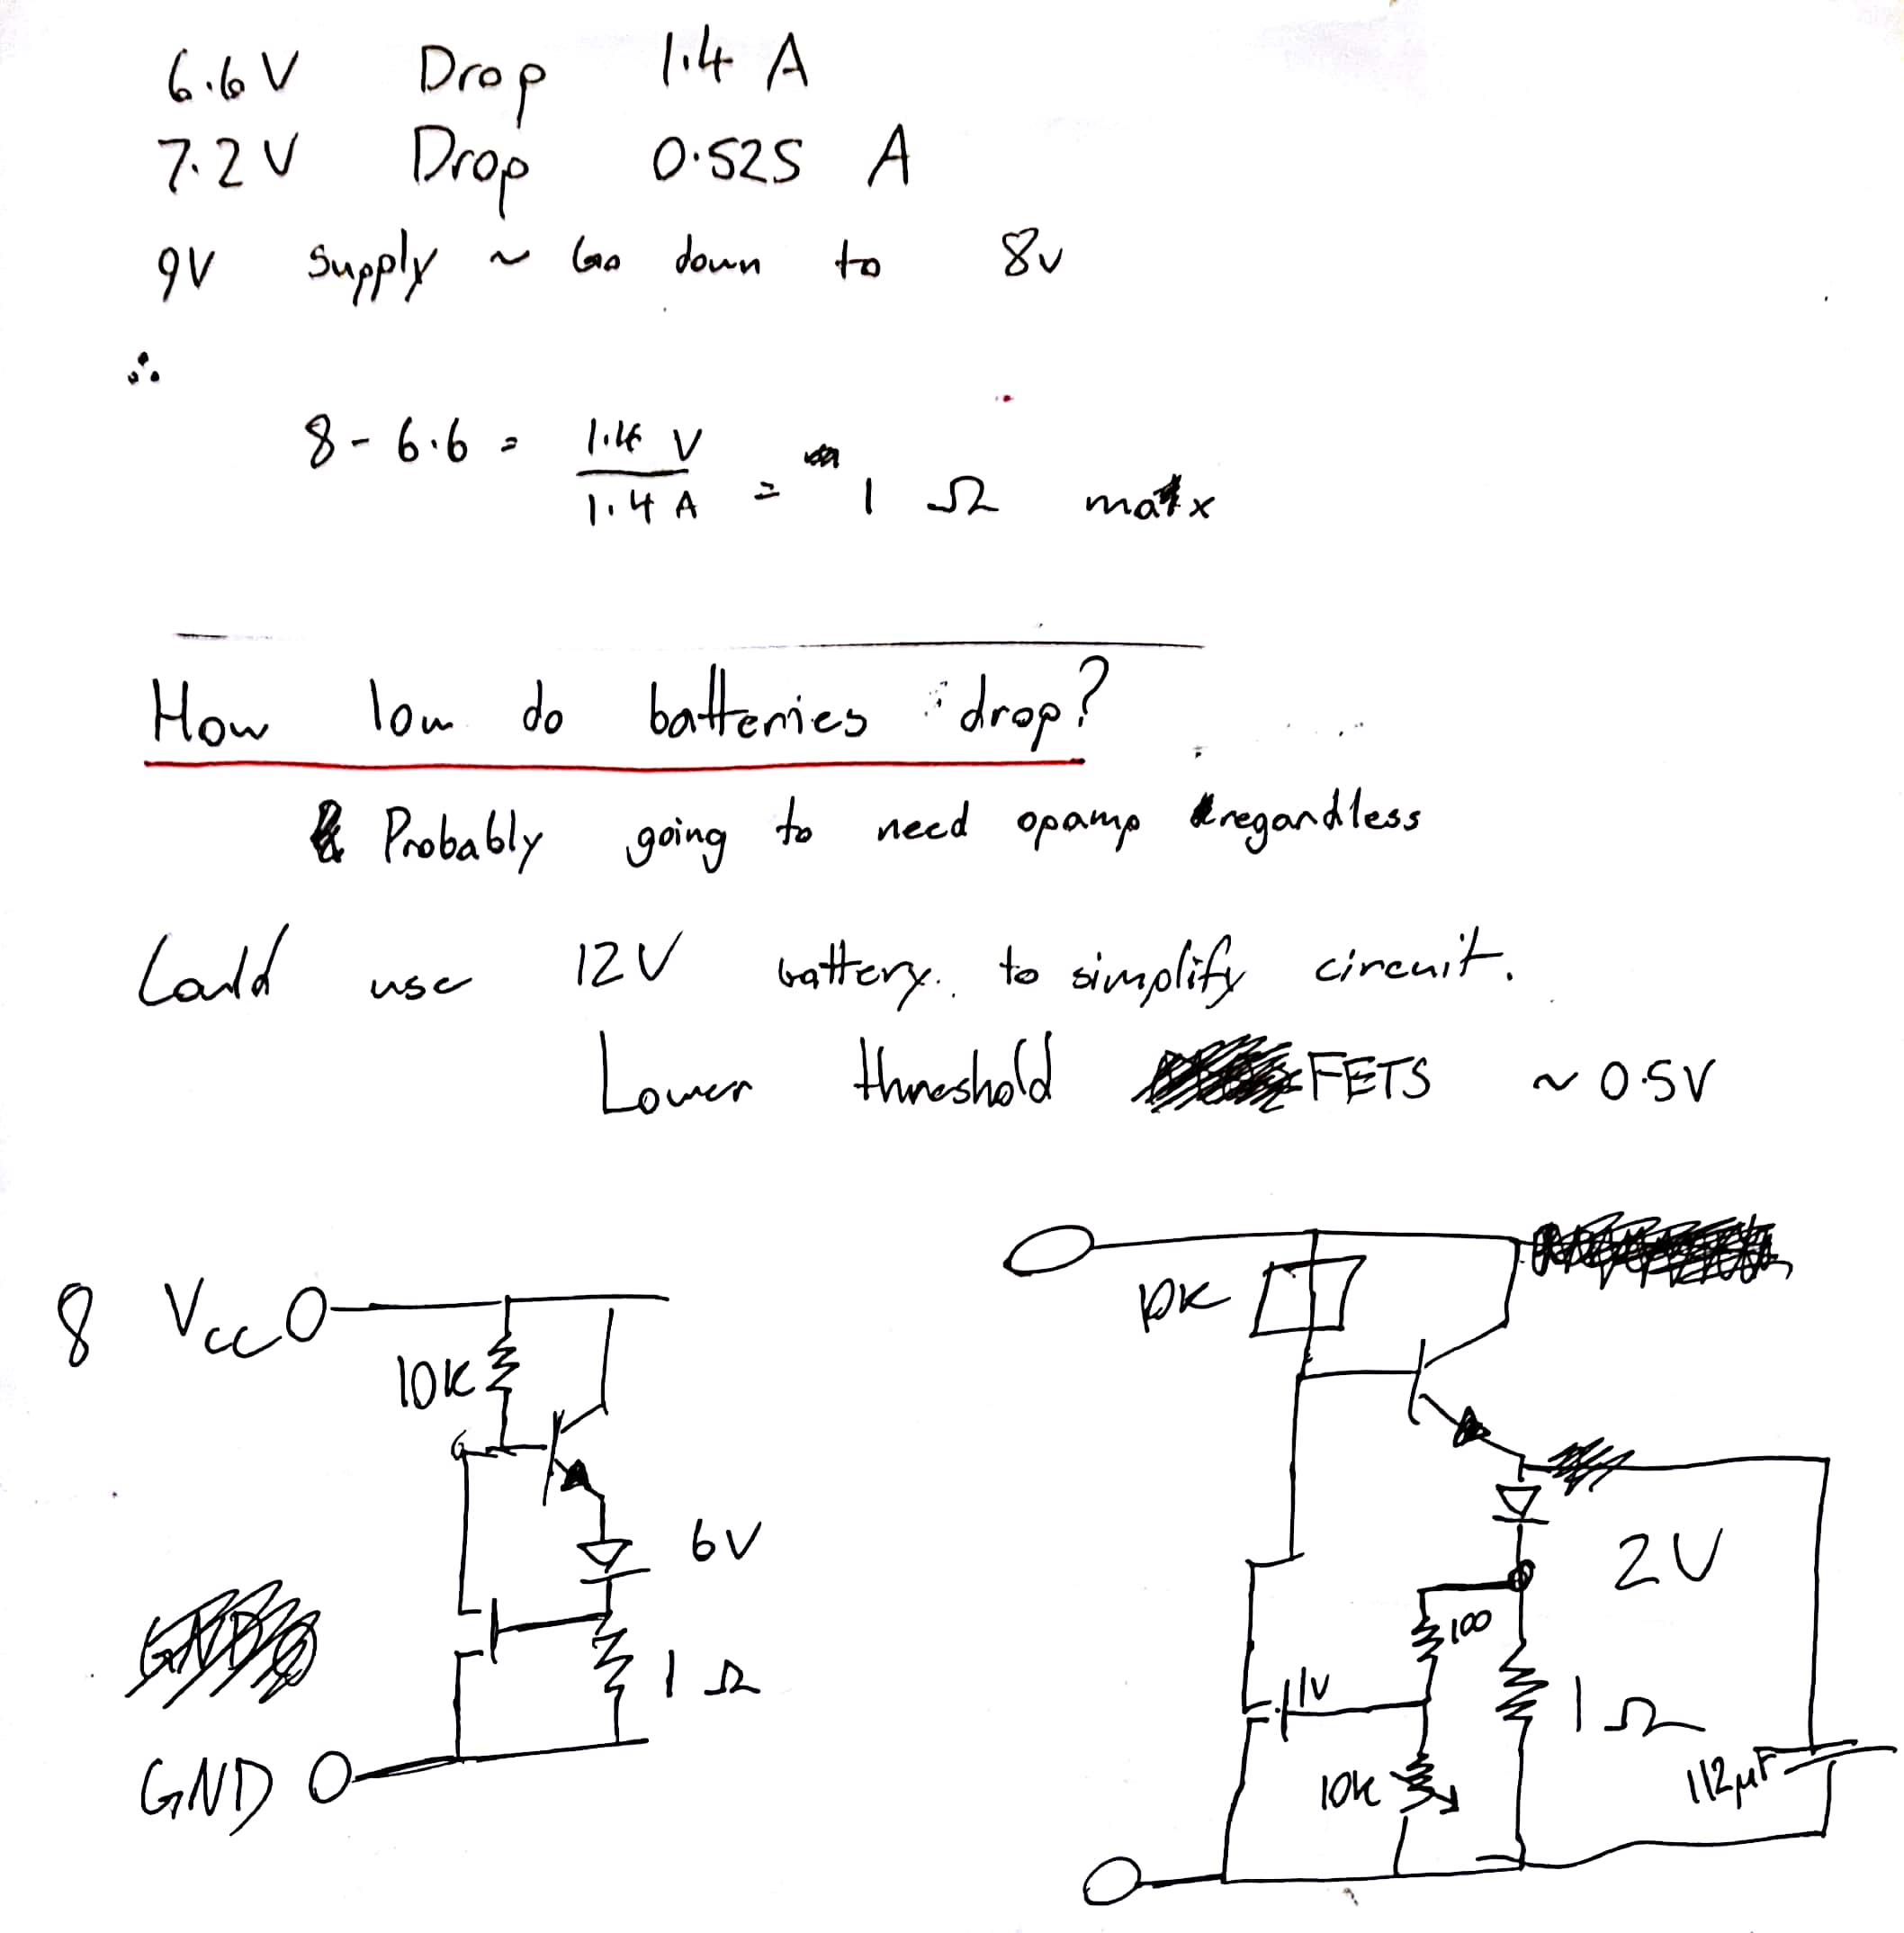 6.6V Drop 1.4 A
7.2V Drop 0.525 A
9V supply ~ Go down to 8v
∴
8 - 6.6 = 1.4 V
1.4 A
= 1 Ω max
How low do batteries drop?
Probably going to need opamp regardless
Could use 12V battery. to simplify circuit.
Lower threshold FETS ~ 0.5V
8 Vcc
10K
6V
1 Ω
GND
10K
2V
100
1V
1 Ω
10K
112µF